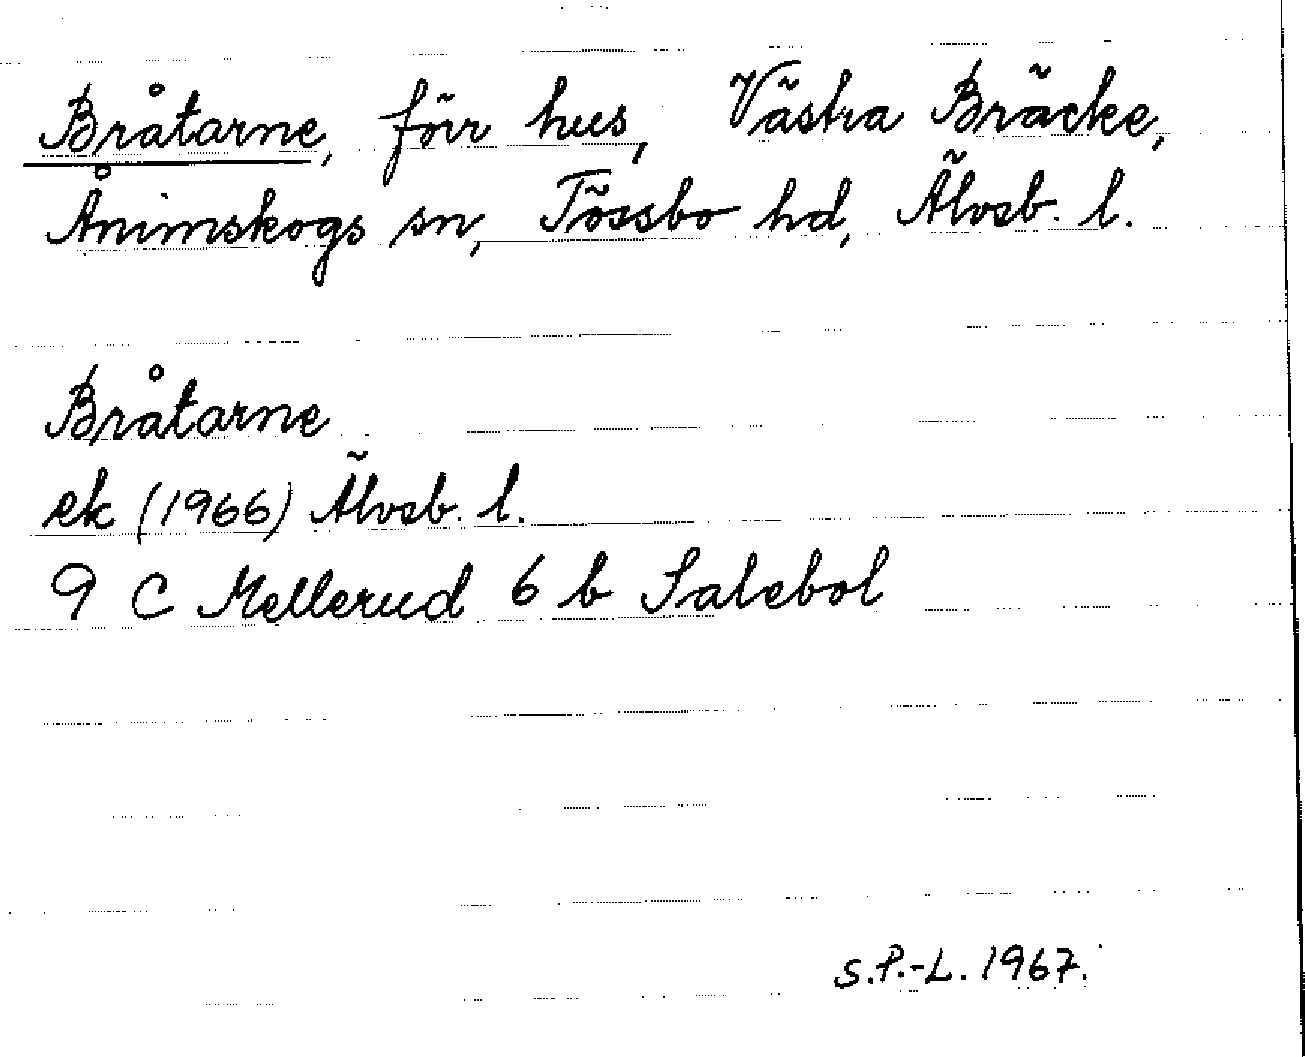 Bråtarne, förr hus, Västra Bräcke,
Ånimskogs sn, Tössbo hd, Älvsb. l.
Bråtarne
ek (1966) Älvsb. l.
9 C Mellerud 6 b Salebol
S.P.-L. 1967.